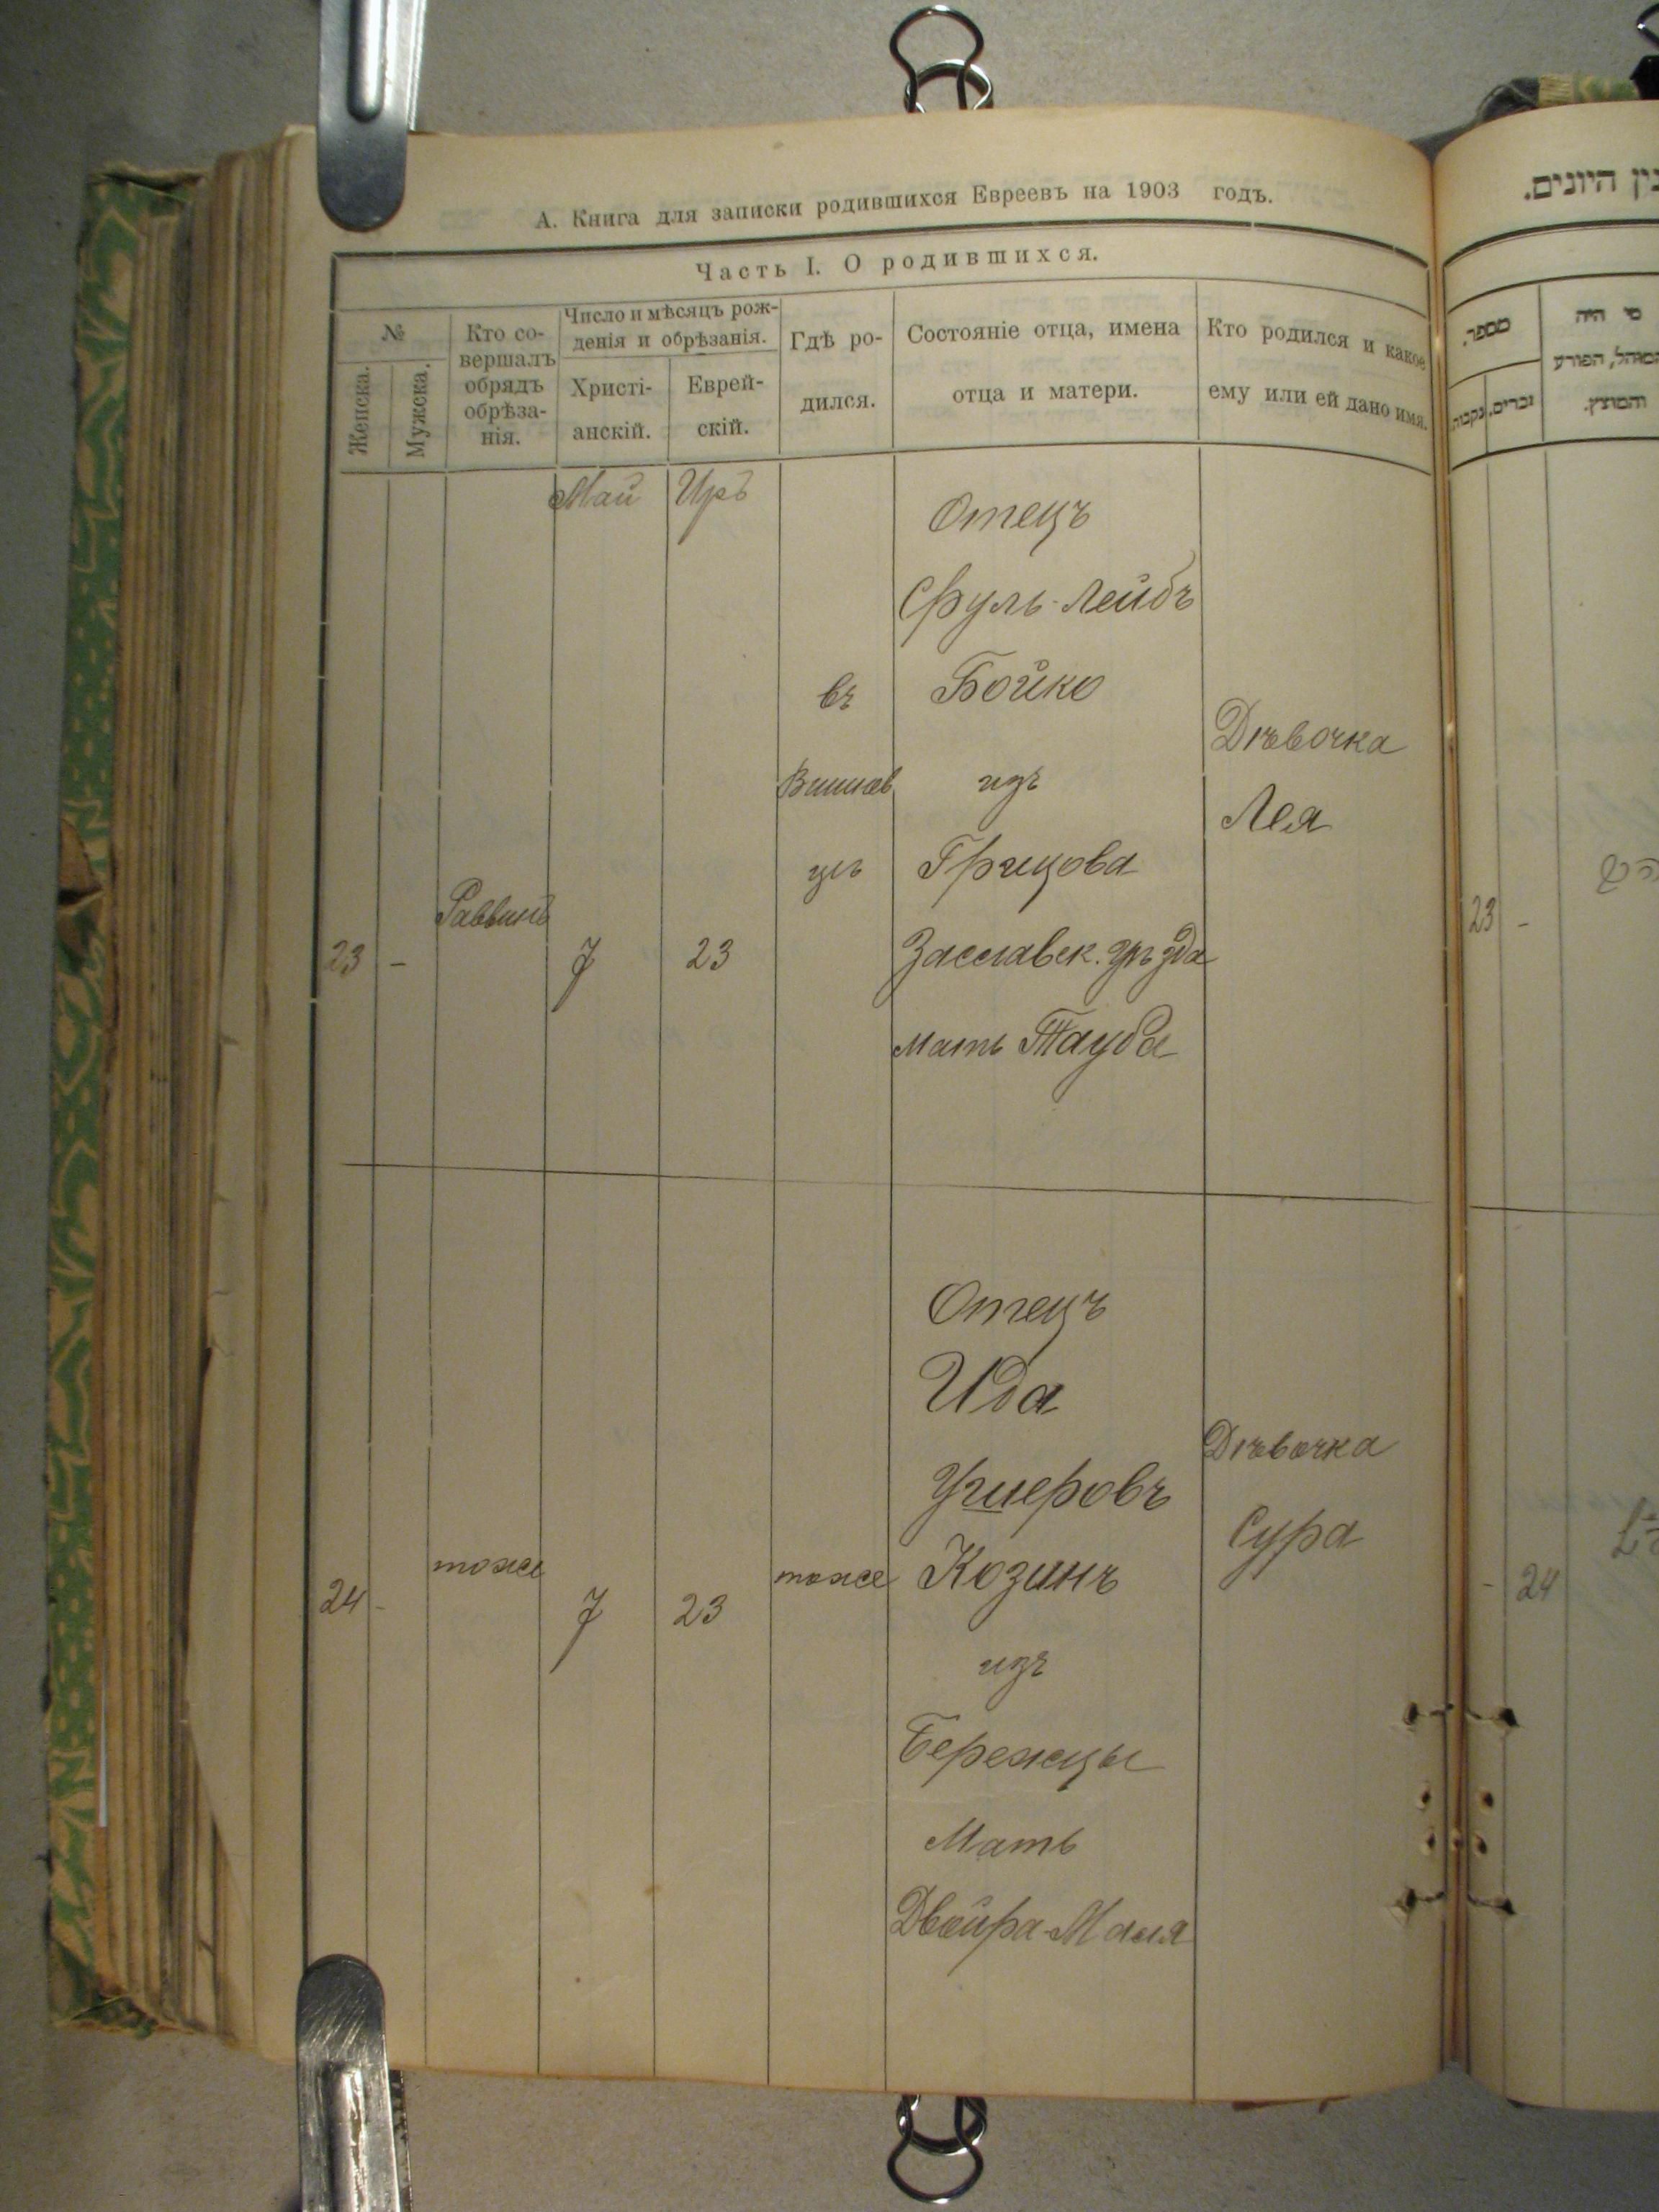 А. Книга для записки родившихся Евреевъ на 1903 годъ.
Часть I. О родившихся.
№
Женска.
Мужска.
Кто со-
вершалъ
обрядъ
обрѣза-
нія.
Число и мѣсяцъ рож-
денія и обрѣзанія.
Христі-
анскій.
Еврей-
скій.
Гдѣ ро-
дился.
Состояніе отца, имена
отца и матери.
Кто родился и какое
ему или ей дано имя.
Май
Иръ
23
-
Раввинъ
7
23
въ
Вишнев
цѣ
Отецъ
Сруль-Лейбъ
Бойко
изъ
Грицова
Заславск. уѣзда
мать Тауба
Дѣвочка
Лея
24
-
тоже
7
23
тоже
Отецъ
Ида
Ушеровъ
Козинъ
изъ
Бережцы
Мать
Двойра-Маля
Дѣвочка
Сура
היונים.
מספר.
נקבות.
זכרים.
מי היה
המוהל, הפורע
והמוצץ.
23
-
-
24